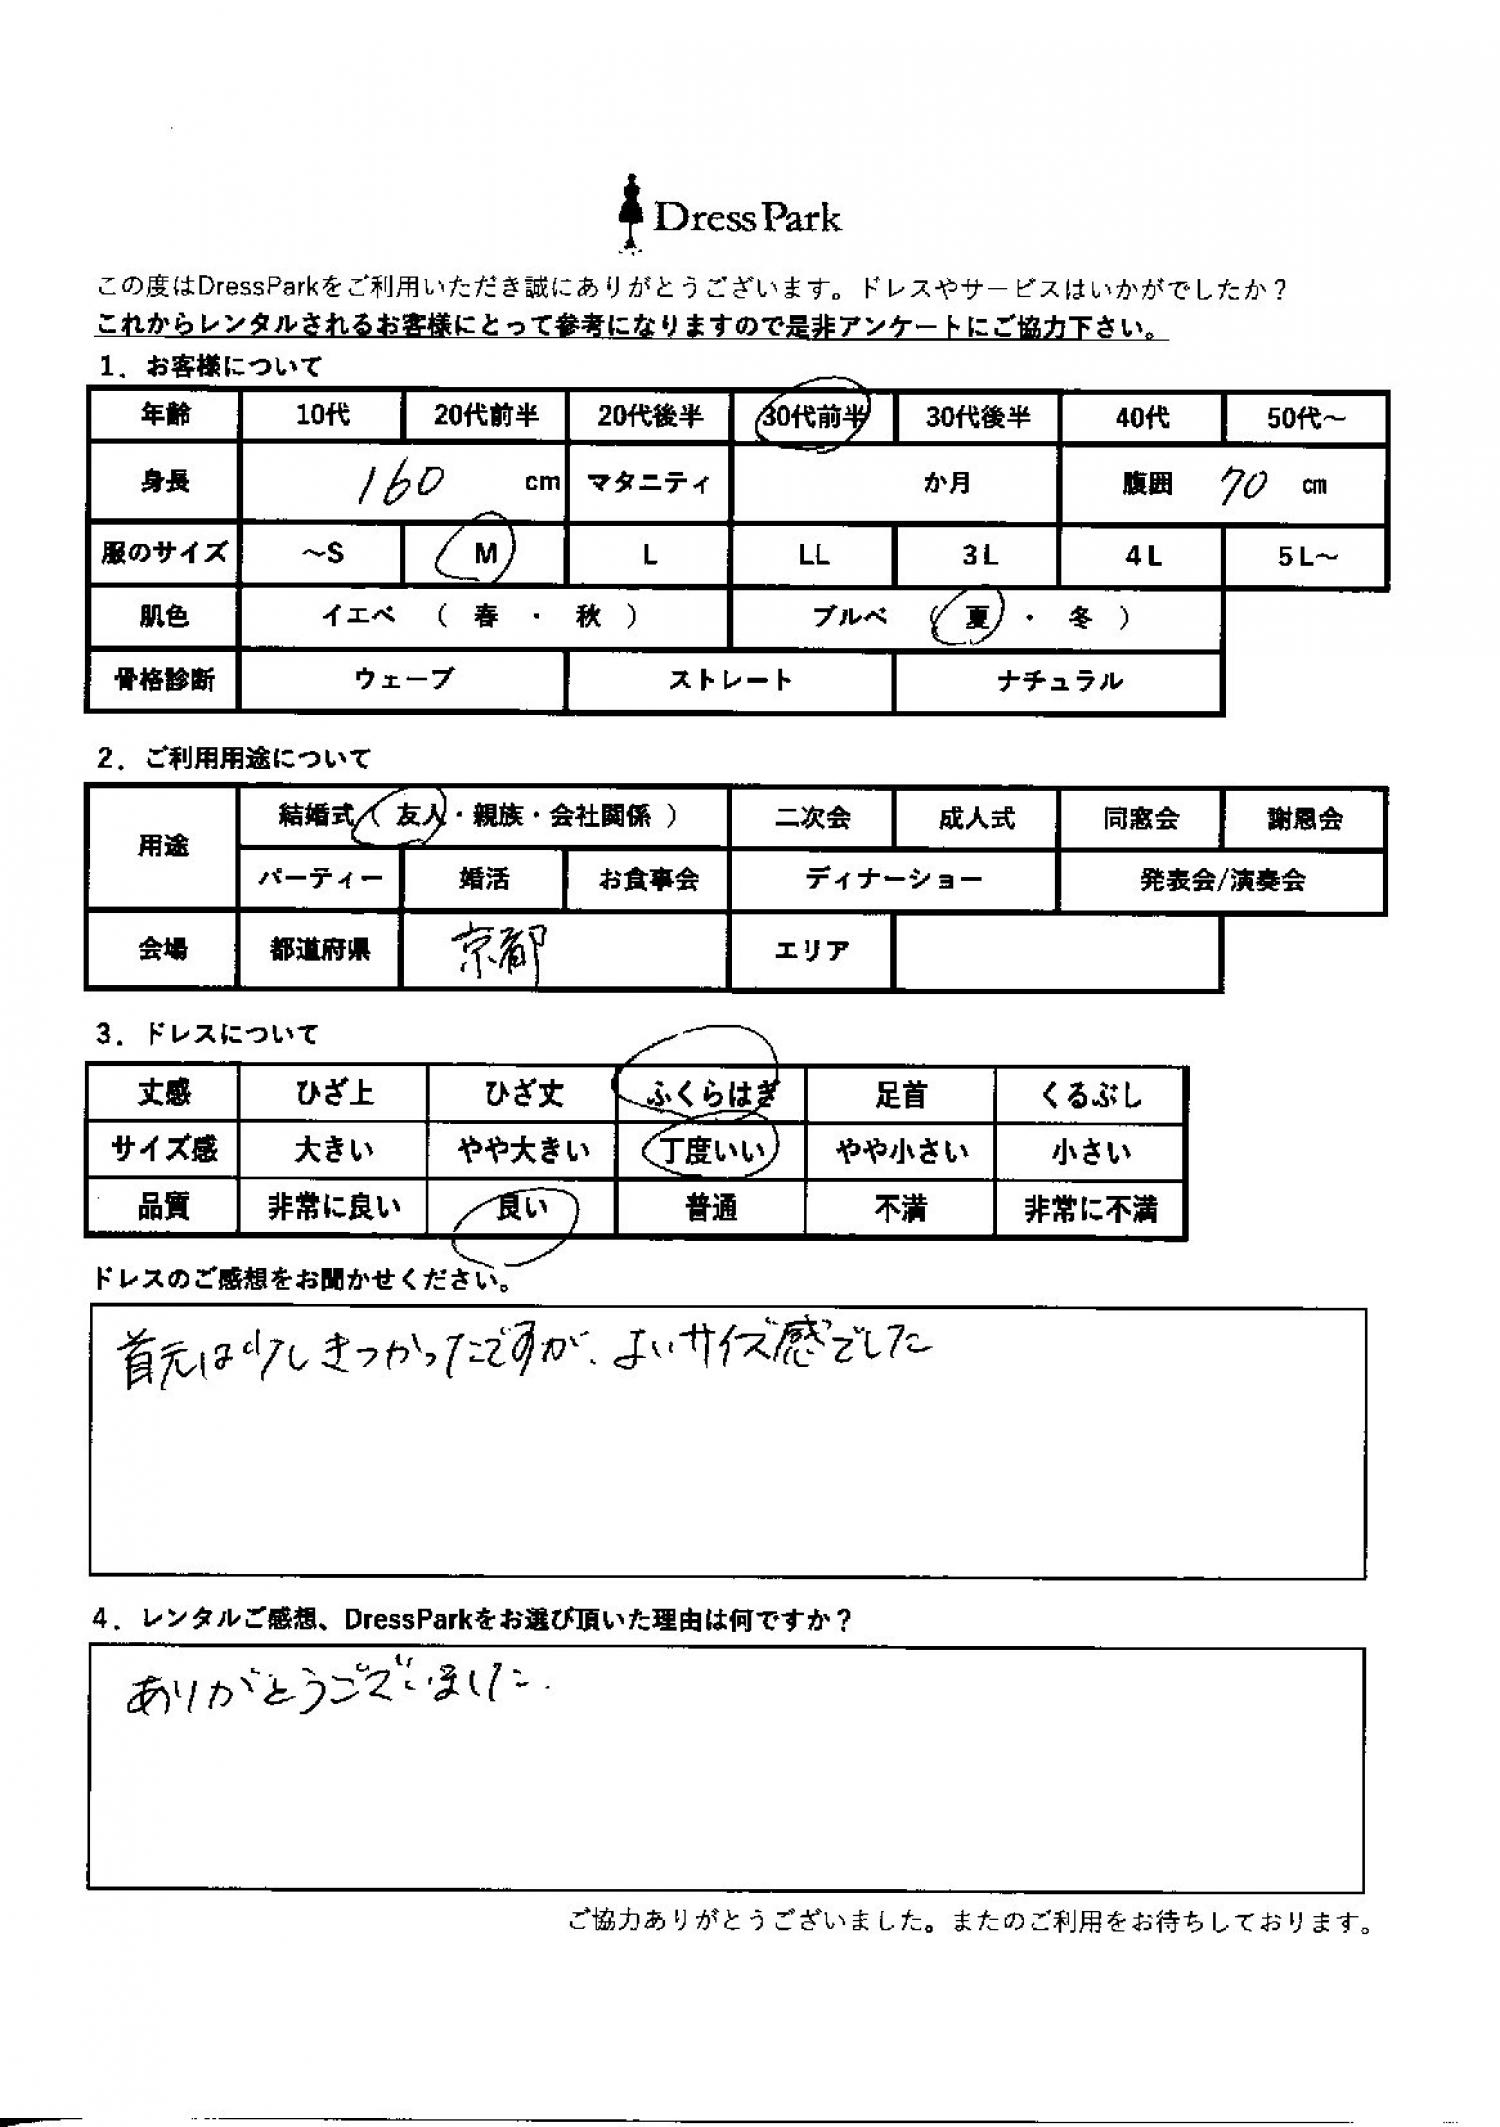 Dress Park
この度はDressParkをご利用いただき誠にありがとうございます。ドレスやサービスはいかがでしたか？
これからレンタルされるお客様にとって参考になりますので是非アンケートにご協力下さい。
1．お客様について
年齢 10代 20代前半 20代後半 30代前半 30代後半 40代 50代～
身長 160 cm マタニティ か月 腹囲 70 cm
服のサイズ ～S M L LL 3L 4L 5L～
肌色 イエベ （ 春 ・ 秋 ） ブルベ （ 夏 ・ 冬 ）
骨格診断 ウェーブ ストレート ナチュラル
2．ご利用用途について
用途 結婚式（ 友人・親族・会社関係 ） 二次会 成人式 同窓会 謝恩会
パーティー 婚活 お食事会 ディナーショー 発表会/演奏会
会場 都道府県 京都 エリア
3．ドレスについて
丈感 ひざ上 ひざ丈 ふくらはぎ 足首 くるぶし
サイズ感 大きい やや大きい 丁度いい やや小さい 小さい
品質 非常に良い 良い 普通 不満 非常に不満
ドレスのご感想をお聞かせください。
首元は少しきつかったですが、よいサイズ感でした
4．レンタルご感想、DressParkをお選び頂いた理由は何ですか？
ありがとうございました.
ご協力ありがとうございました。またのご利用をお待ちしております。